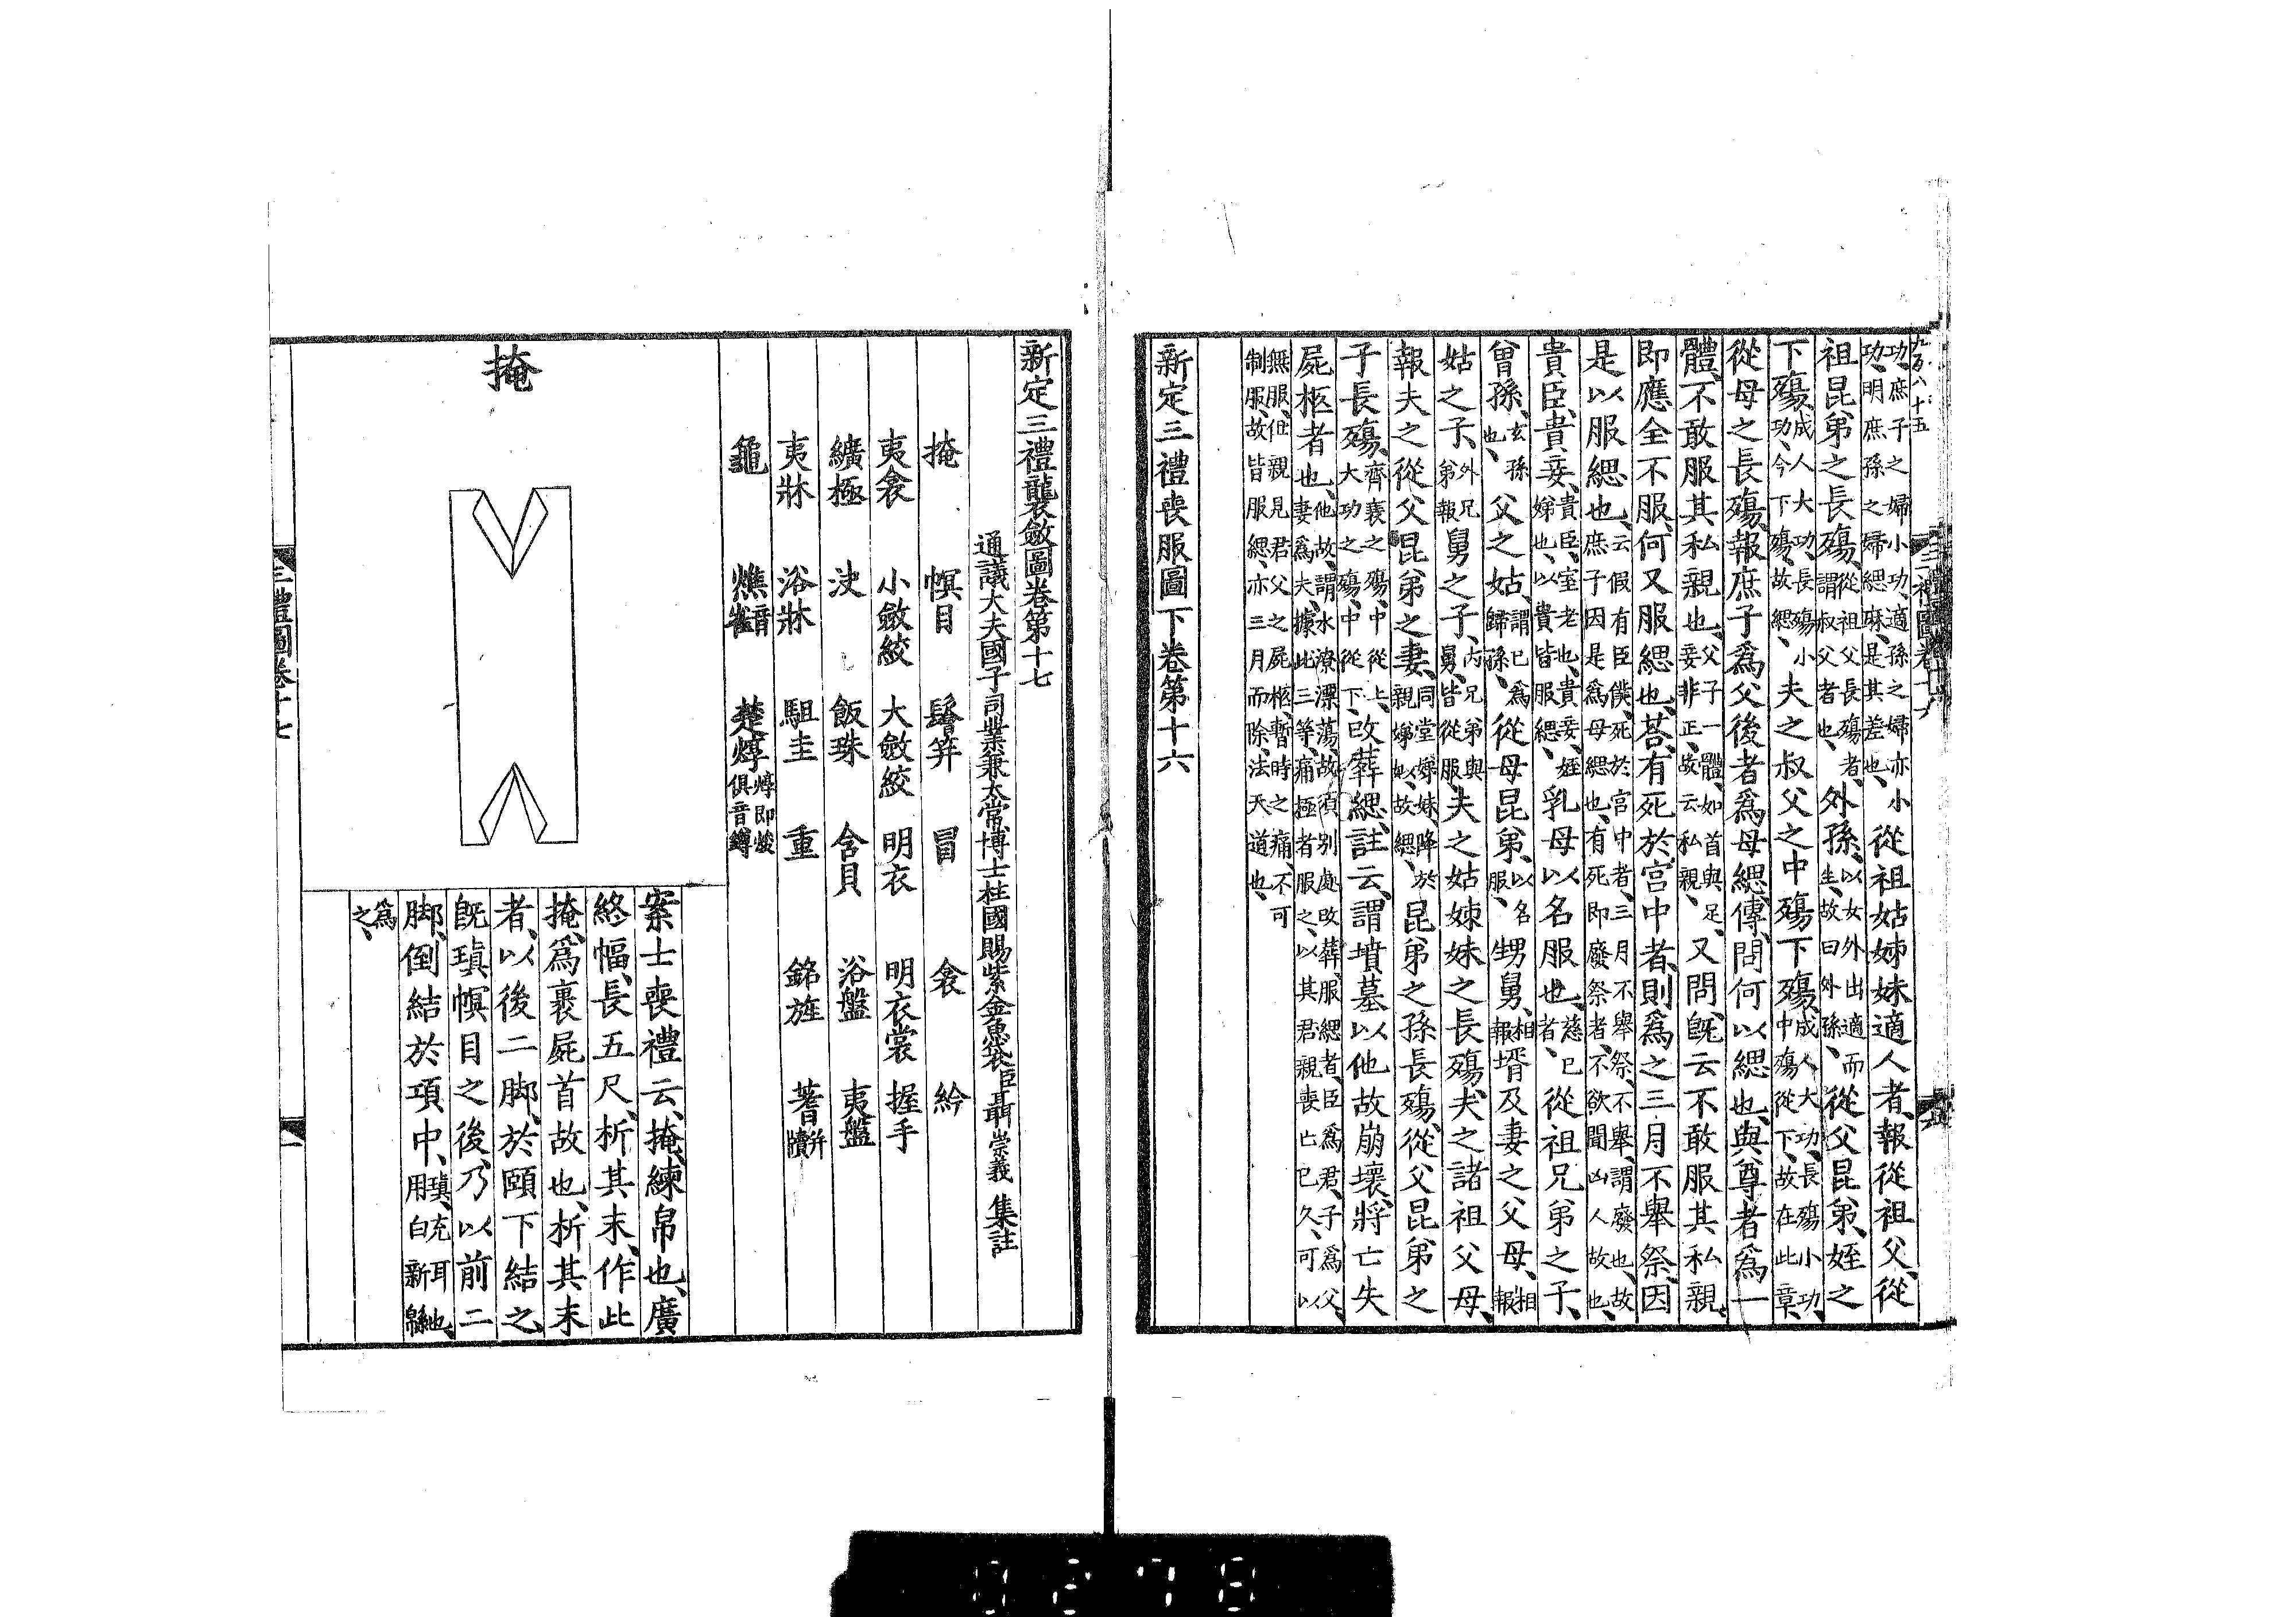 九百八十五
功、庶子之婦小功、適孫之婦亦小功、明庶孫之婦緦麻、是其差也、從祖姑姊妹適人者、報從祖父、從
祖昆弟之長殤、從祖父長殤者、謂叔父者也、外孫、以女外出適而生、故曰外孫、從父昆弟、姪之
下殤、成人大功、長殤小功、今下殤、故緦、夫之叔父之中殤下殤、成人大功、長殤小功、中殤從下、故在此章、
從母之長殤、報庶子爲父後者爲母緦、傳、問何以緦也、與尊者爲一
體、不敢服其私親也、父子一體、如首與足、妾非正、故云私親、又問、旣云不敢服其私親、
即應全不服、何又服緦也、荅、有死於宮中者、則爲之三月不舉祭、因
是以服緦也、云假有臣僕、死於宮中者、三月不舉祭、不舉、謂廢也、故庶子因是爲母緦也、有死即廢祭者、不欲聞凶人故也、
貴臣、貴妾、貴臣、室老也、貴妾、姪娣也、以貴皆服緦、乳母以名服也、慈已者、從祖兄弟之子、
曾孫、玄孫也、父之姑、謂已爲歸孫、從母昆弟、以名服、甥舅、相報壻及妻之父母、相報
姑之子、外兄弟報舅之子、內兄弟與舅、皆從服、夫之姑姊妹之長殤、夫之諸祖父母、
報夫之從父昆弟之妻、同堂娣姒、降於親娣姒、故緦、昆弟之孫長殤、從父昆弟之
子長殤、齊衰之殤、中從上、大功之殤、中從下、改葬緦、註云、謂墳墓以他故崩壞、將亡失
屍柩者也、他故、謂水潦漂蕩、故須別處改葬、服緦者、臣爲君、子爲父、妻爲夫、據此三等、痛極者服之、以其君親喪亡已久、可以
無服、但親見君父之屍柩、暫時之痛、不可制服、故皆服緦、亦三月而除、法天道也、
新定三禮喪服圖下卷第十六
新定三禮襲斂圖卷第十七
通議大夫國子司業兼太常博士柱國賜紫金魚袋臣聶崇義 集註
掩 幎目 鬠笄 冒 衾 紟
夷衾 小斂絞 大斂絞 明衣 明衣裳 握手
纊極 決 飯珠 含貝 浴盤 夷盤
夷牀 浴牀 駔圭 重 銘旌 蓍并韥
龜 燋音雀 楚焞焞即焌俱音鐏
掩
案士喪禮云、掩、練帛也、廣
終幅、長五尺、析其末、作此
掩、爲裹屍首故也、析其末
者、以後二脚、於頤下結之、
旣瑱幎目之後、乃以前二
脚、倒結於項中、瑱、充耳也、用白新緜
爲之、
三禮圖卷十七
一